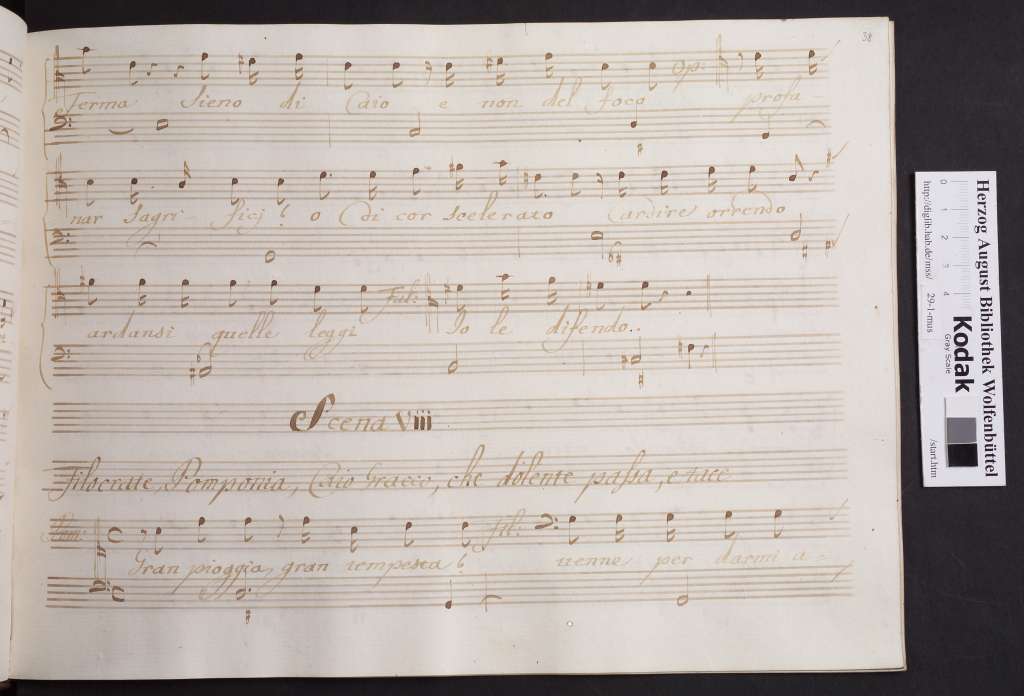 38
Ferma sieno di Caio e non del foco Op: profa-
nar sagri ficj! o (di cor scelerato Cardire orrendo
ardansi quelle leggi Ful: Io le difendo..
Scena Viii
Filocrate, Pomponia, Caio Gracco, che dolente passa, e tace
Pom: Gran pioggia, gran tempesta! Fil: uenne per darmi a-
Herzog August Bibliothek Wolfenbüttel
http://diglib.hab.de/mss/ 29-1-mus /start.htm
0 1 2 3 4
Kodak
Gray Scale